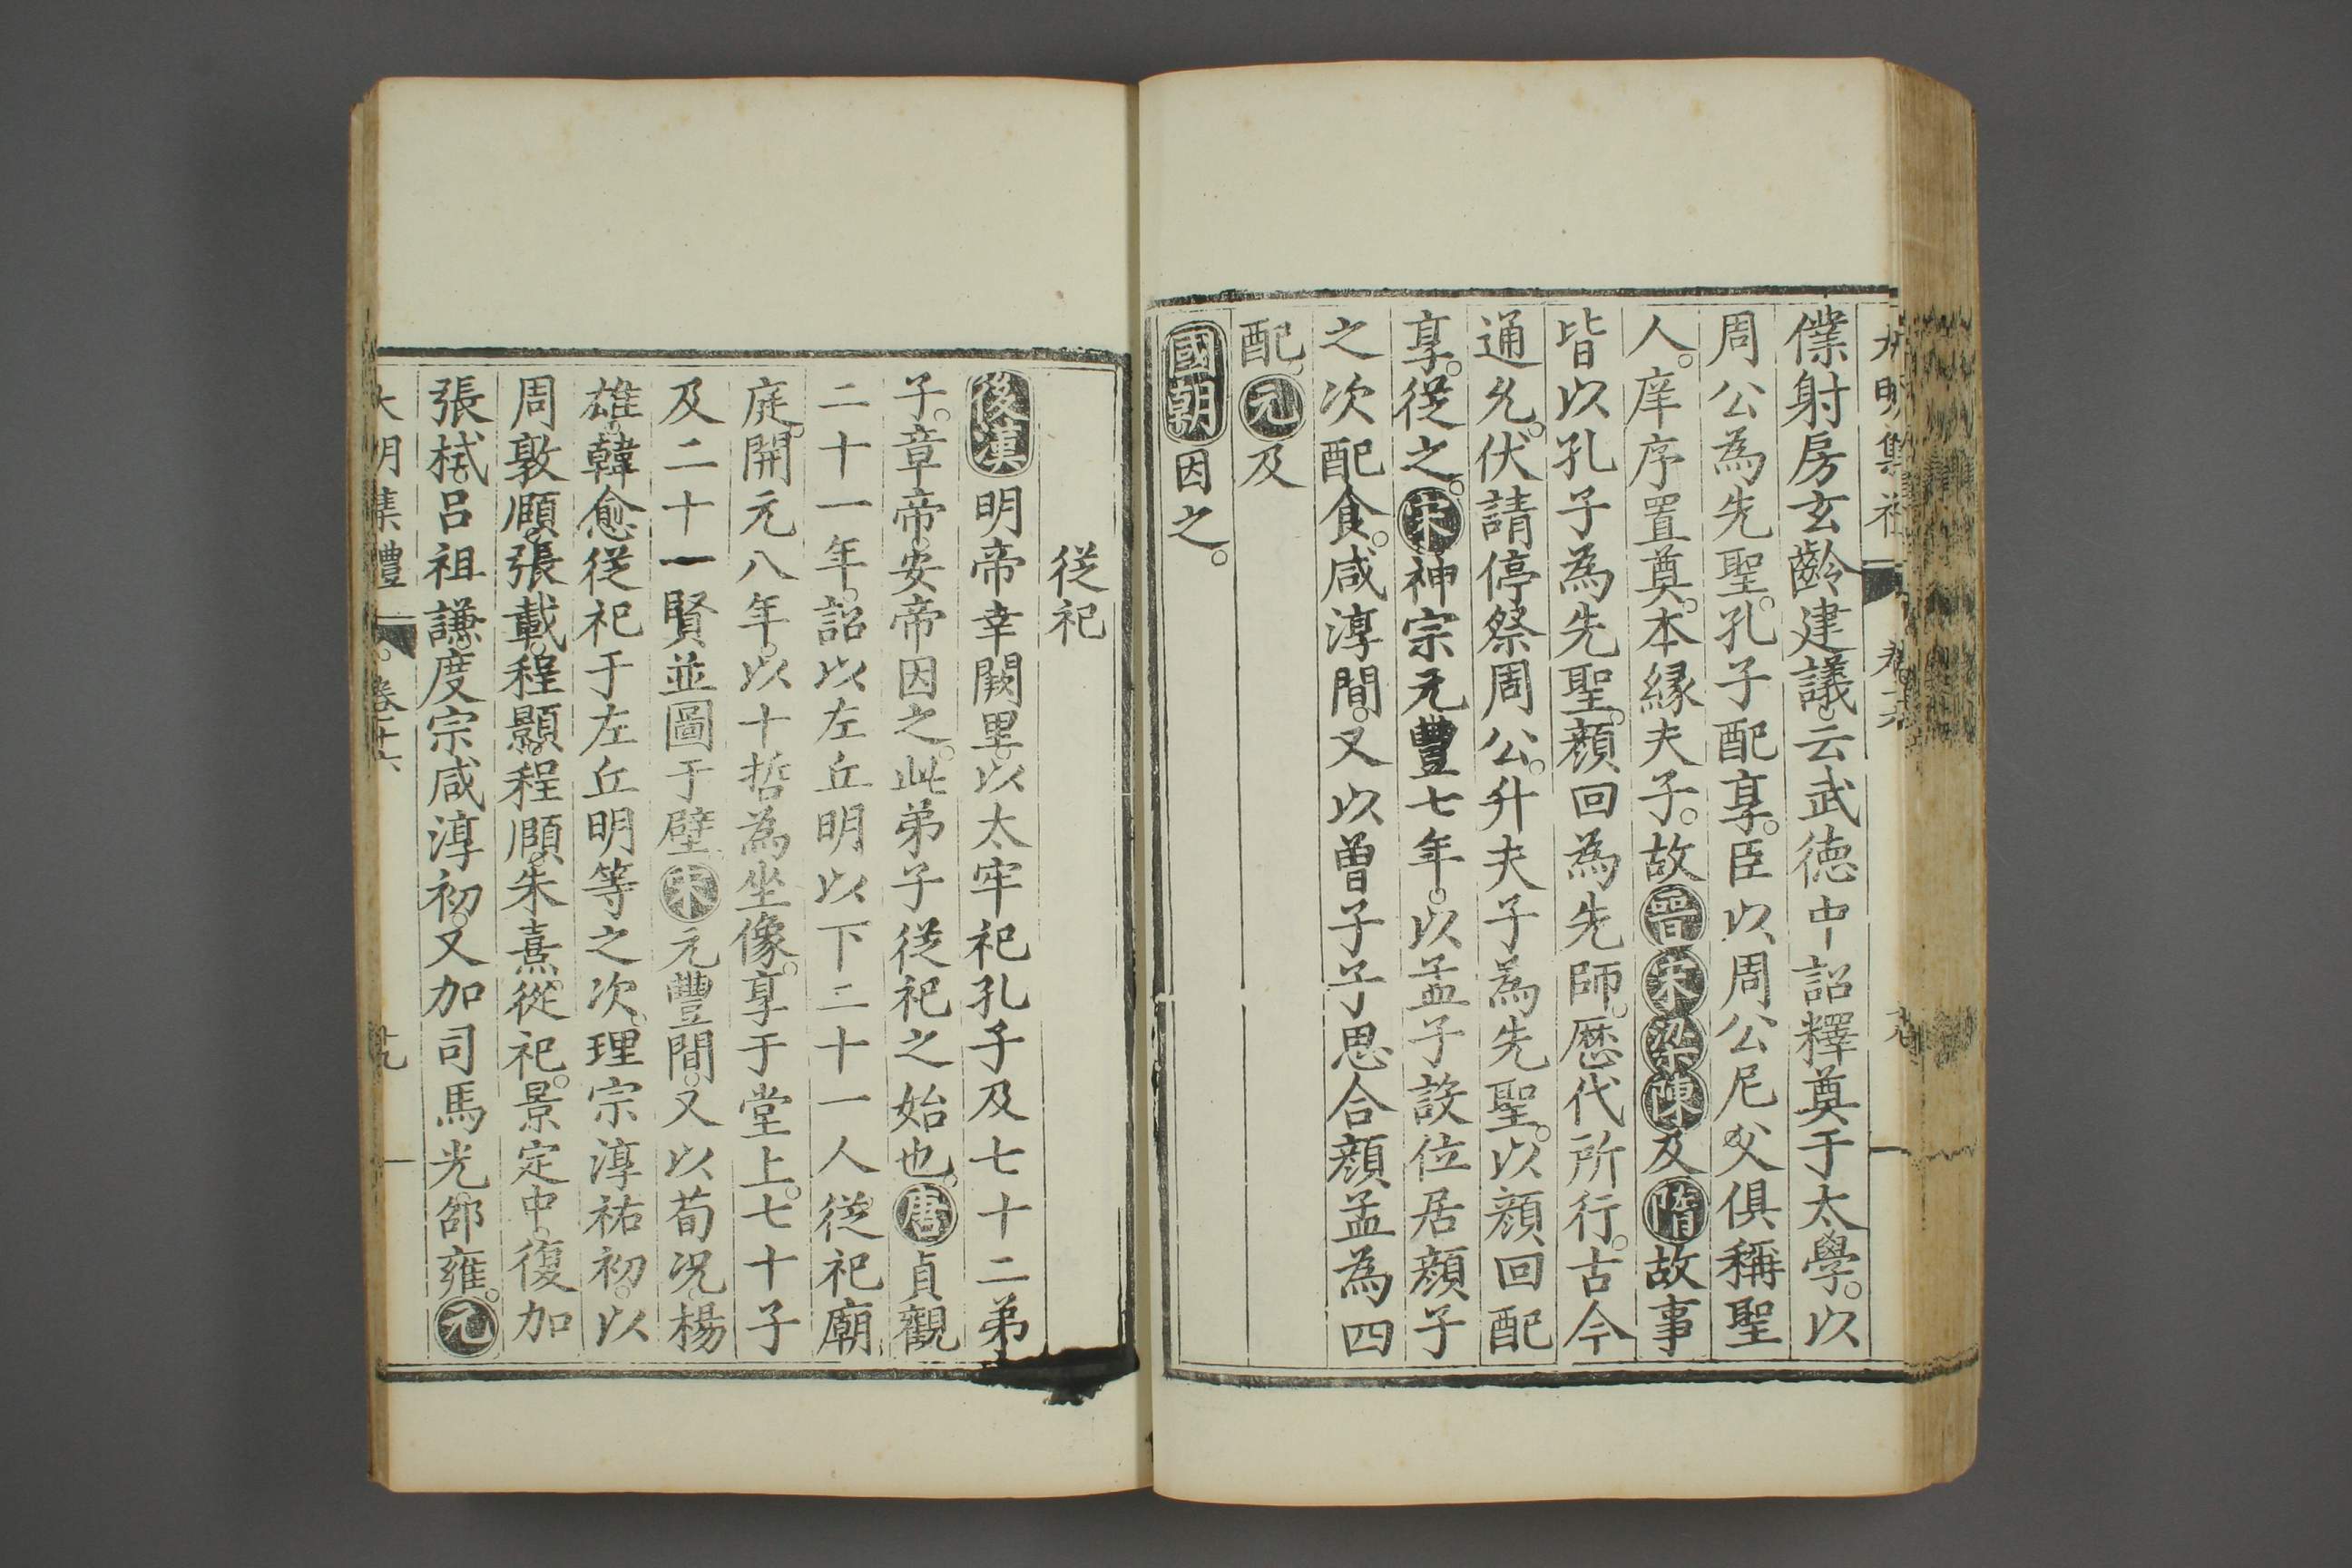 僕射房玄齡建議。云武德中詔釋奠于太學。以
周公為先聖。孔子配享。臣以周公尼父俱稱聖
人。庠序置奠。本緣夫子。故晉宋梁陳及隋故事
皆以孔子為先聖。顔回為先師。歷代所行。古今
通允。伏請停祭周公。升夫子為先聖。以顔回配
享。從之。宋神宗元豐七年。以孟子設位居顔子
之次配食。咸淳間。又以曾子子思合顔孟為四
配。元及
國朝因之。
從祀
後漢明帝幸闕里。以太牢祀孔子及七十二弟
子。章帝。安帝因之。此弟子從祀之始也。唐貞觀
二十一年。詔以左丘明以下二十一人從祀廟
庭。開元八年。以十哲為坐像。享于堂上。七十子
及二十一賢並圖于壁。宋元豐間。又以荀況。楊
雄。韓愈從祀于左丘明等之次。理宗淳祐初。以
周敦頤。張載。程顥。程頤。朱熹。從祀。景定中。復加
張栻。呂祖謙。度宗咸淳初。又加司馬光。邵雍。元
大明集禮 卷十六 十九